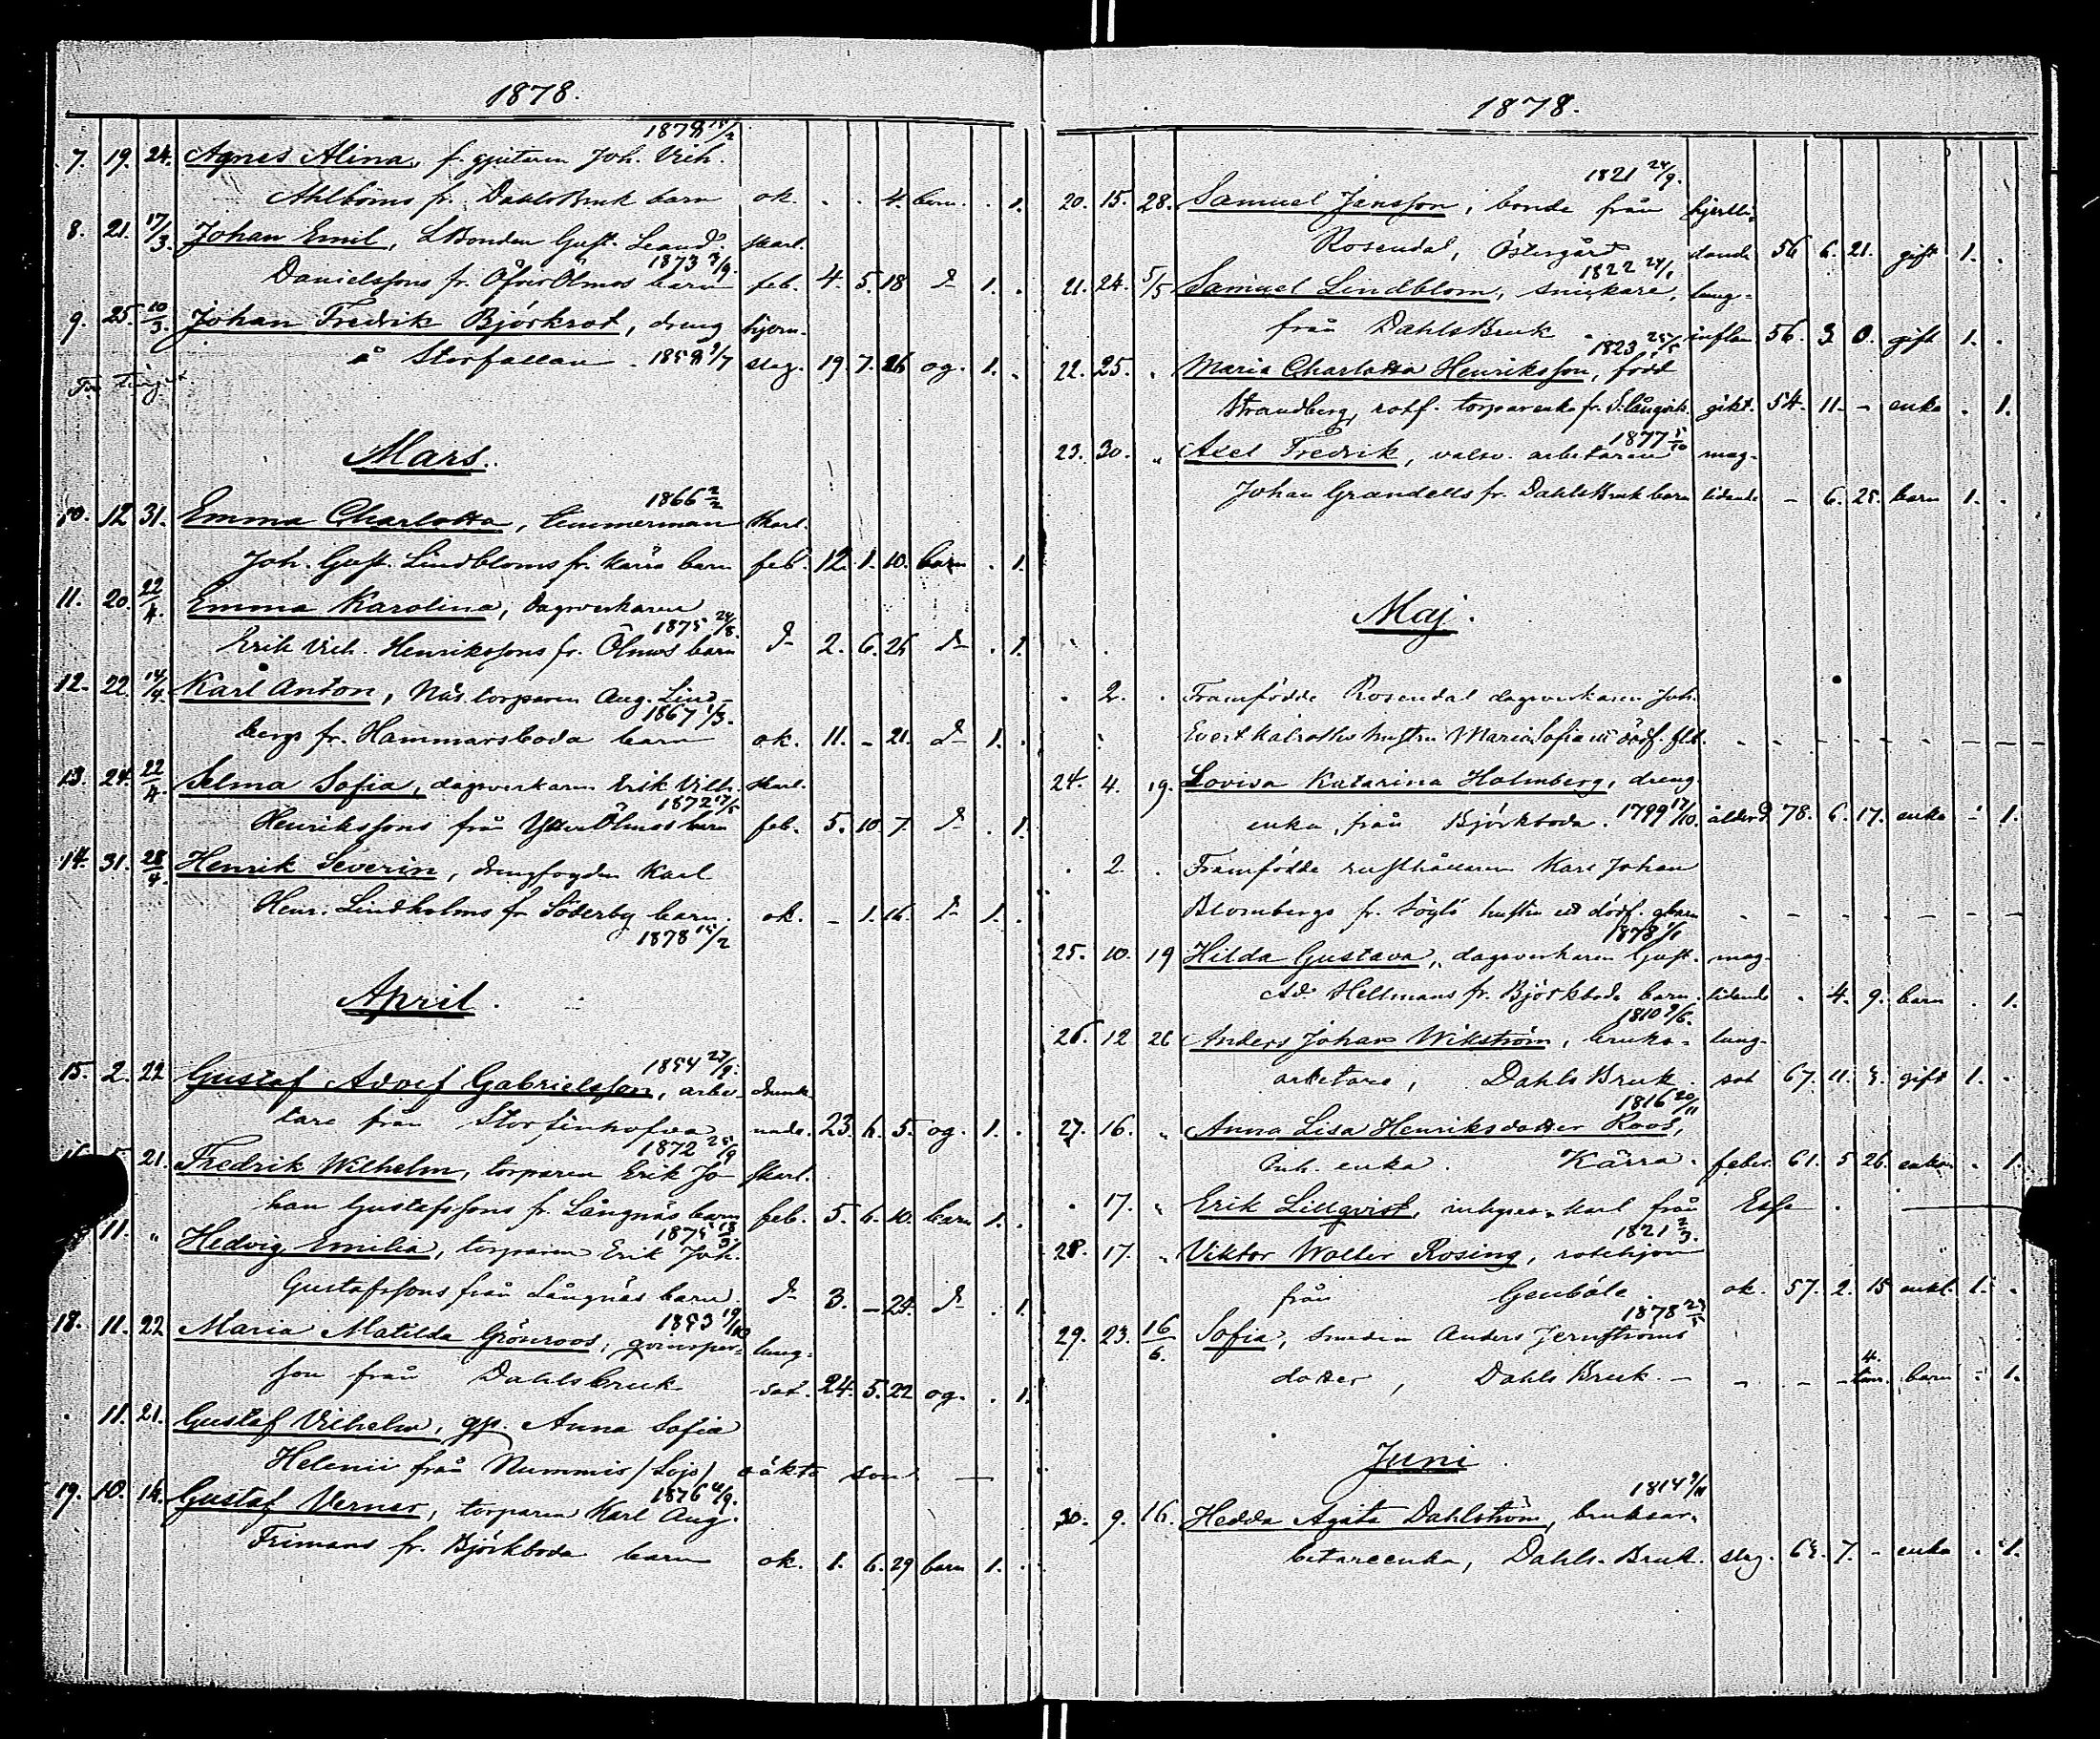 1878.
1878 15/2
7. 19. 24. Agnes Alina, f. gjutaren Joh. Vilh.
Ahlboms fr. DahlsBruk barn ok. . . 4. barn . 1.
8. 21. 17/3. Johan Emil, LBonden Gust. Leand. skarl.
1873 3/9.
Danielssons fr. ÖfverÖlmos barn feb. 4. 5. 18 d- 1. .
9. 25. 10/3. Johan Fredrik Björkrot, dreng hjern-
å Storfallan. 1858 1/7 slag. 19. 7. 26 og. 1. .
Tinget
Mars.
1866 2/2
10. 12 31. Emma Charlotta, temmerman skarl.
Joh. Gust. Lindbloms fr. Kärra barn feb. 12. 1. 10. barn . 1.
11. 20. 22/4. Emma Karolina, dagsverkaren
1875 24/8.
Erik Vilh. Henrikssons fr. Ölmos barn d- 2. 6. 26 d- . 1.
12. 22. 14/4. Karl Anton, Näs torparen Aug. Lind-
1867 1/3.
bergs fr. Hammarsboda barn ok. 11. - 21. d- 1. .
13. 24. 22/4. Selma Sofia, dagsverkaren Erik Vilh. skarl.
1872 17/5
Henrikssons från YtterÖlmos barn feb. 5. 10. 7. d- . 1.
14. 31. 28/4. Henrik Severin, drengfogden Karl
Henr. Lindholms fr Söderby barn. ok. - 1. 16. d- 1. .
1878 15/2
April.
1854 27/9.
15. 2. 22 Gustaf Adolf Gabrielsson, arbe- drunk-
tare från Storfinhofva nade. 23. 6. 5. og. 1. .
1872 25/9
21. Fredrik Wilhelm, torparen Erik Jo- skarl.
han Gustafssons fr. Långnäs barn feb. 5. 6. 10. barn 1. .
1875 18/3.
11. " Hedvig Emilia, torparen Erik Joh.
Gustafssons från Långnäs barn. d- 3. - 24. d- . 1.
1853 19/10
18. 11. 22 Maria Matilda Grönroos, qvinsper- lung-
son från Dahlsbruk sot. 24. 5. 22 og. . 1.
. 11. 21. Gustaf Vilhelm, qp. Anna Sofia
Helenii från Nummis (Lojo) oäkta son —
1876 11/9.
19. 10. 14. Gustaf Verner, torparen Karl Aug.
Frimans fr. Björkboda barn ok. 1. 6. 29 barn 1. .
1878.
1821 24/9.
20. 15. 28. Samuel Jansson, bonde från hjertli-
Rosendal, Östergård dande 56 6. 21. gift 1. .
1822 24/1
21. 24. 5/5 Samuel Lindblom, snickare, lung-
från DahlsBruk inflam 56. 3 0. gift 1. .
1823 25/5
22. 25. . Maria Charlotta Henriksson, född
Strandberg, rotf. torparenka fr. gikt. 54. 11. - enka . 1.
1877 5/10
23. 30. " Axel Fredrik, valsv. arbetaren mag-
Johan Grandells fr. DahlsBruk barn lidande - 6. 25. barn 1. .
Maj.
. 2. . Framfödde Rosendal dagsverkaren Joh.
Evert Kalroths hustru Maria Sofia dödf.
24. 4. 19. Lovisa Katarina Holmberg, dreng
enka, från Björkboda. 1799 17/10. ålderd 78. 6. 17. enka - 1.
. 2. . Framfödde rusthållaren Karl Johan
Blombergs fr. Söglö hustru ett dödf. gbarn
1878 1/1
25. 10. 19 Hilda Gustava, dagsverkaren Gust. mag-
Ad Hellmans fr. Björkboda barn. lidande . 4. 9. barn . 1.
1810 9/6.
26. 12 26 Anders Johan Wikström, bruks- lung-
arbetare, Dahls Bruk. sot 67. 11. 3. gift 1. .
1816 20/11
27. 16. " Anna Lisa Henriksdotter Roos,
Inh. enka. Kärra. feber. 61. 5 26. enka . 1.
. 17. " Erik Lillqvist, inhyses-karl från Esse. —
1821 2/3.
28. 17. " Viktor Walter Rosing, rotehjon
från Genböle. ok. 57. 2. 15 enkl. 1. .
1878 23/5
29. 23. 16/6. Sofia, smeden Anders Jernströms
dotter, Dahls Bruk. - - - 4. tim. barn - 1.
Juni
1814 9/11
30. 9. 16. Hedda Agata Dahlström, bruksar-
betareenka, Dahls. Bruk. slag. 63. 7. - enka . 1.